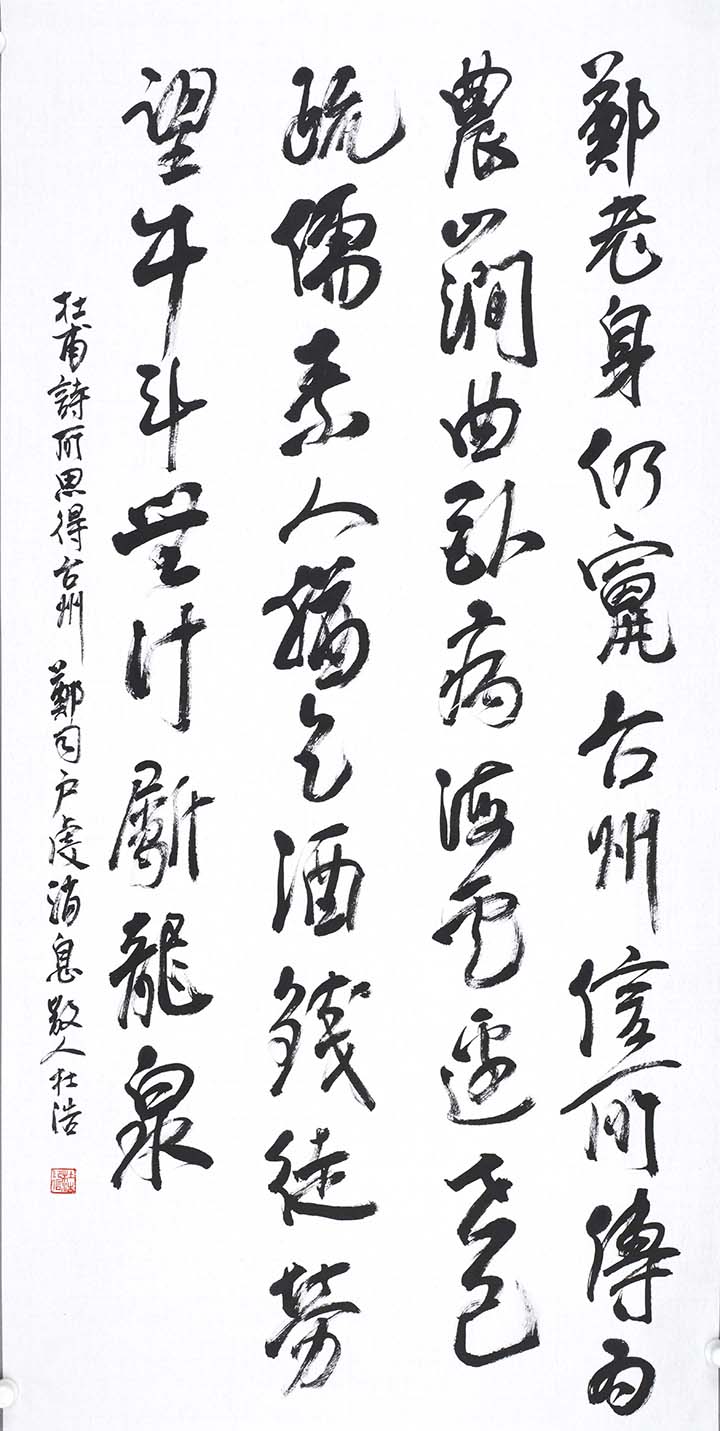 鄭老身仍竄台州信所傳為
農山澗曲臥病海雲邊世已
疏儒素人猶乞酒錢徒勞
望牛斗無計斸龍泉
杜甫詩所思得台州 鄭司戶虔消息散人杜浩